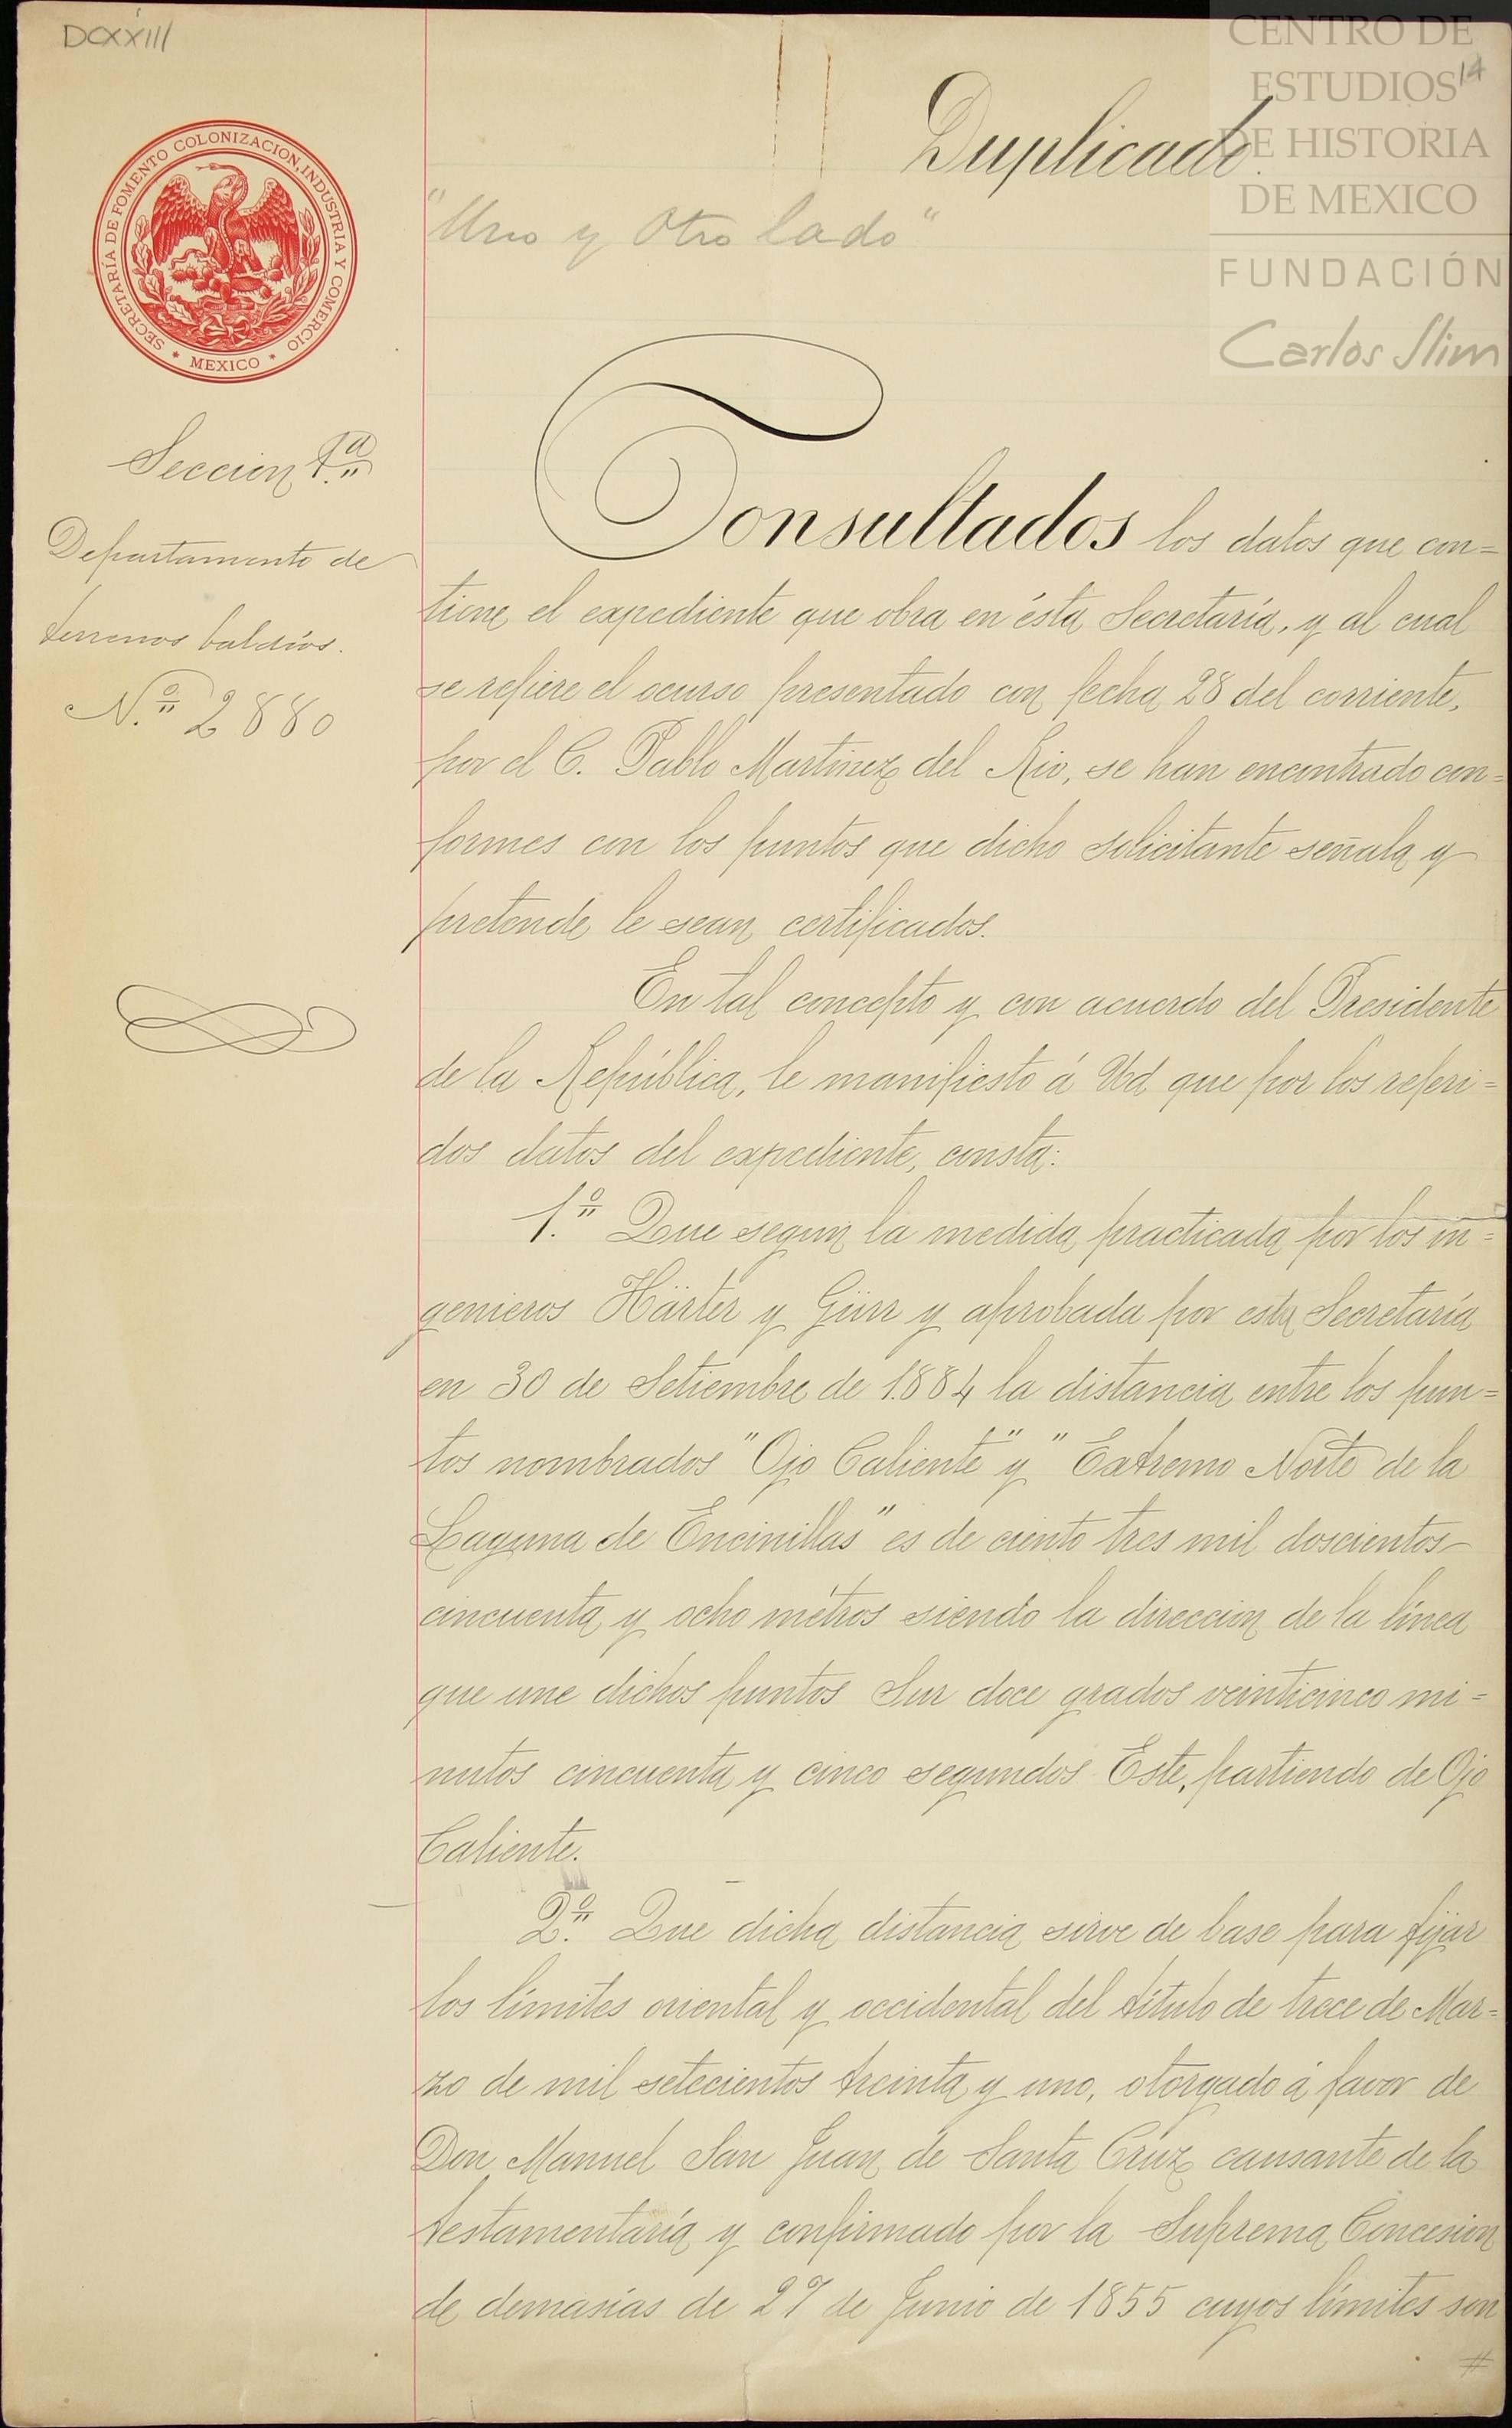 DCXXIII
CENTRO DE
ESTUDIOS
14
DE HISTORIA
DE MEXICO
FUNDACIÓN
Carlos Slim
Duplicado.
"Uno y Otro lado"
SECRETARÍA DE FOMENTO COLONIZACION, INDUSTRIA Y COMERCIO
* MEXICO *
Seccion 1.ª
Departamento de
terrenos baldíos.
N.º 2880
Consultados los datos que con=
tiene el expediente que obra en ésta Secretaría, y al cual
se refiere el ocurso presentado con fecha 28 del corriente,
por el C. Pablo Martinez del Rio, se han encontrado con=
formes con los puntos que dicho solicitante señala y
pretende le sean certificados.
En tal concepto y con acuerdo del Presidente
de la República, le manifiesto á Vd que por los referi=
dos datos del expediente, consta:
1.º Que segun la medida practicada por los in=
genieros Härter y Gürr y aprobada por esta Secretaría
en 30 de Setiembre de 1884 la distancia entre los pun=
tos nombrados "Ojo Caliente" y "Extremo Norte de la
Laguna de Encinillas" es de ciento tres mil doscientos
cincuenta y ocho métros siendo la direccion de la línea
que une dichos puntos Sur doce grados veinticinco mi=
nutos cincuenta y cinco segundos Este, partiendo de Ojo
Caliente.
2.º Que dicha distancia sirve de base para fijar
los límites oriental y occidental del título de trece de Mar=
zo de mil setecientos treinta y uno, otorgado á favor de
Don Manuel San Juan de Santa Cruz causante de la
testamentaría y confirmado por la Suprema Concesion
de demasías de 27 de Junio de 1855 cuyos límites son
#